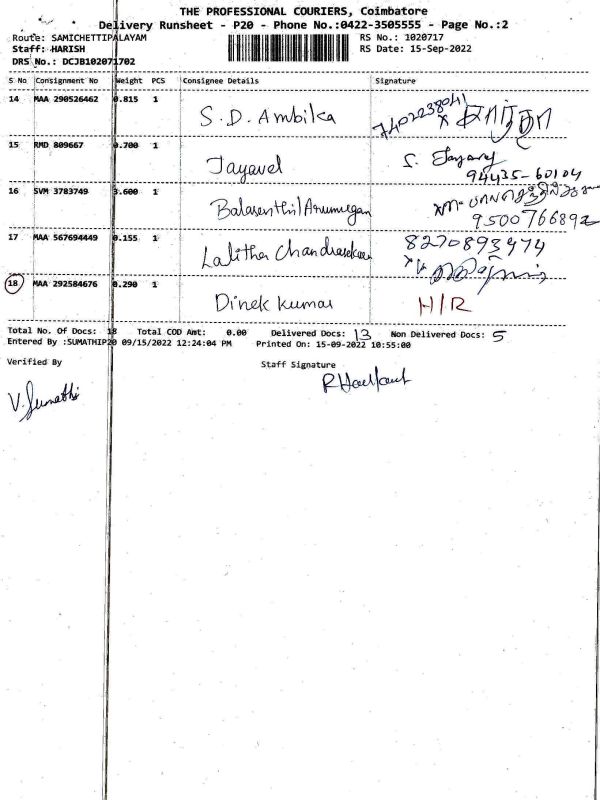 THE PROFESSIONAL COURIERS, Coimbatore
Delivery Runsheet - P20 - Phone No.:0422-3505555 - Page No.:2
Route: SAMICHETTIPALAYAM RS No.: 1020717
Staff: HARISH RS Date: 15-Sep-2022
DRS No.: DCJB102071702
S No Consignment No Weight PCS Consignee Details Signature
14 MAA 290526462 0.815 1 S.D. Ambika 7402238041 x
15 RMD 809667 0.700 1 Jayavel S. Jayavel
94435-60104
16 SVM 3783749 3.600 1 Balasenthil/Arumugan
9500766892
17 MAA 567694449 0.155 1 Lalitha Chandrasekaran 8270893474
18 MAA 292584676 0.290 1 Dinek Kumar H/R
Total No. Of Docs: 18 Total COD Amt: 0.00 Delivered Docs: 13 Non Delivered Docs: 5
Entered By :SUMATHIP20 09/15/2022 12:24:04 PM Printed On: 15-09-2022 10:55:00
Verified By Staff Signature
V. Sumathi